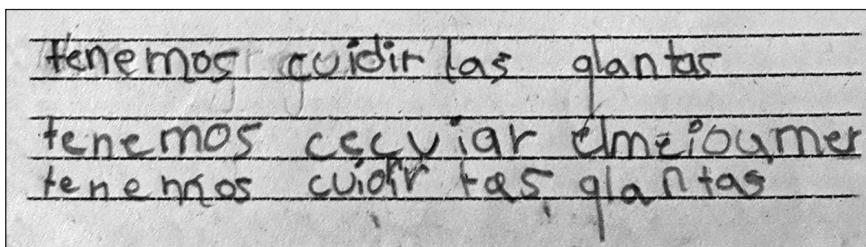 tenemos cuidir las qlantas
tenemos cscuiar elmeioumer
tenemos cuidir tas qlantas